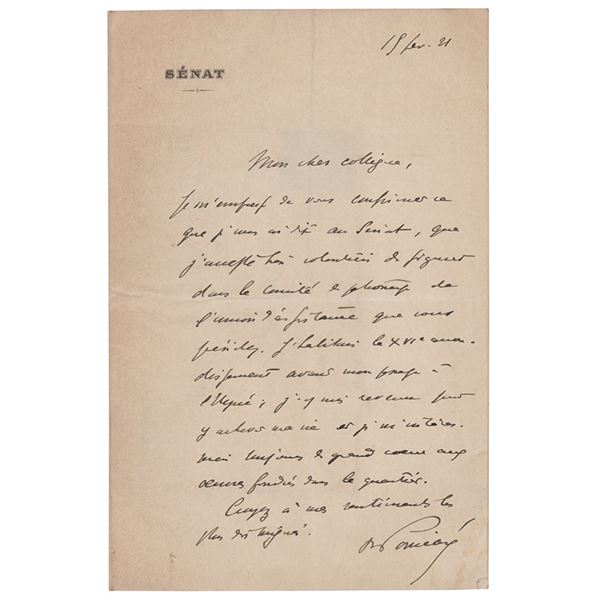 19 fev. 21
SÉNAT
Mon cher collègue,
Je m'empresse de vous confirmer ce
que je vous ai dit au Sénat, que
j'accepte très volontiers de figurer
dans le comité de patronage de
l'union d'assistance que vous
présidez. J'habitais le XVIe arron-
dissement avant mon passage à
l'Elysée ; j'y suis revenu pour
y achever ma vie et je m'intéres-
serai toujours de grand coeur aux
oeuvres fondées dans le quartier.
Croyez à mes sentiments les
plus distingués.
R Poincaré